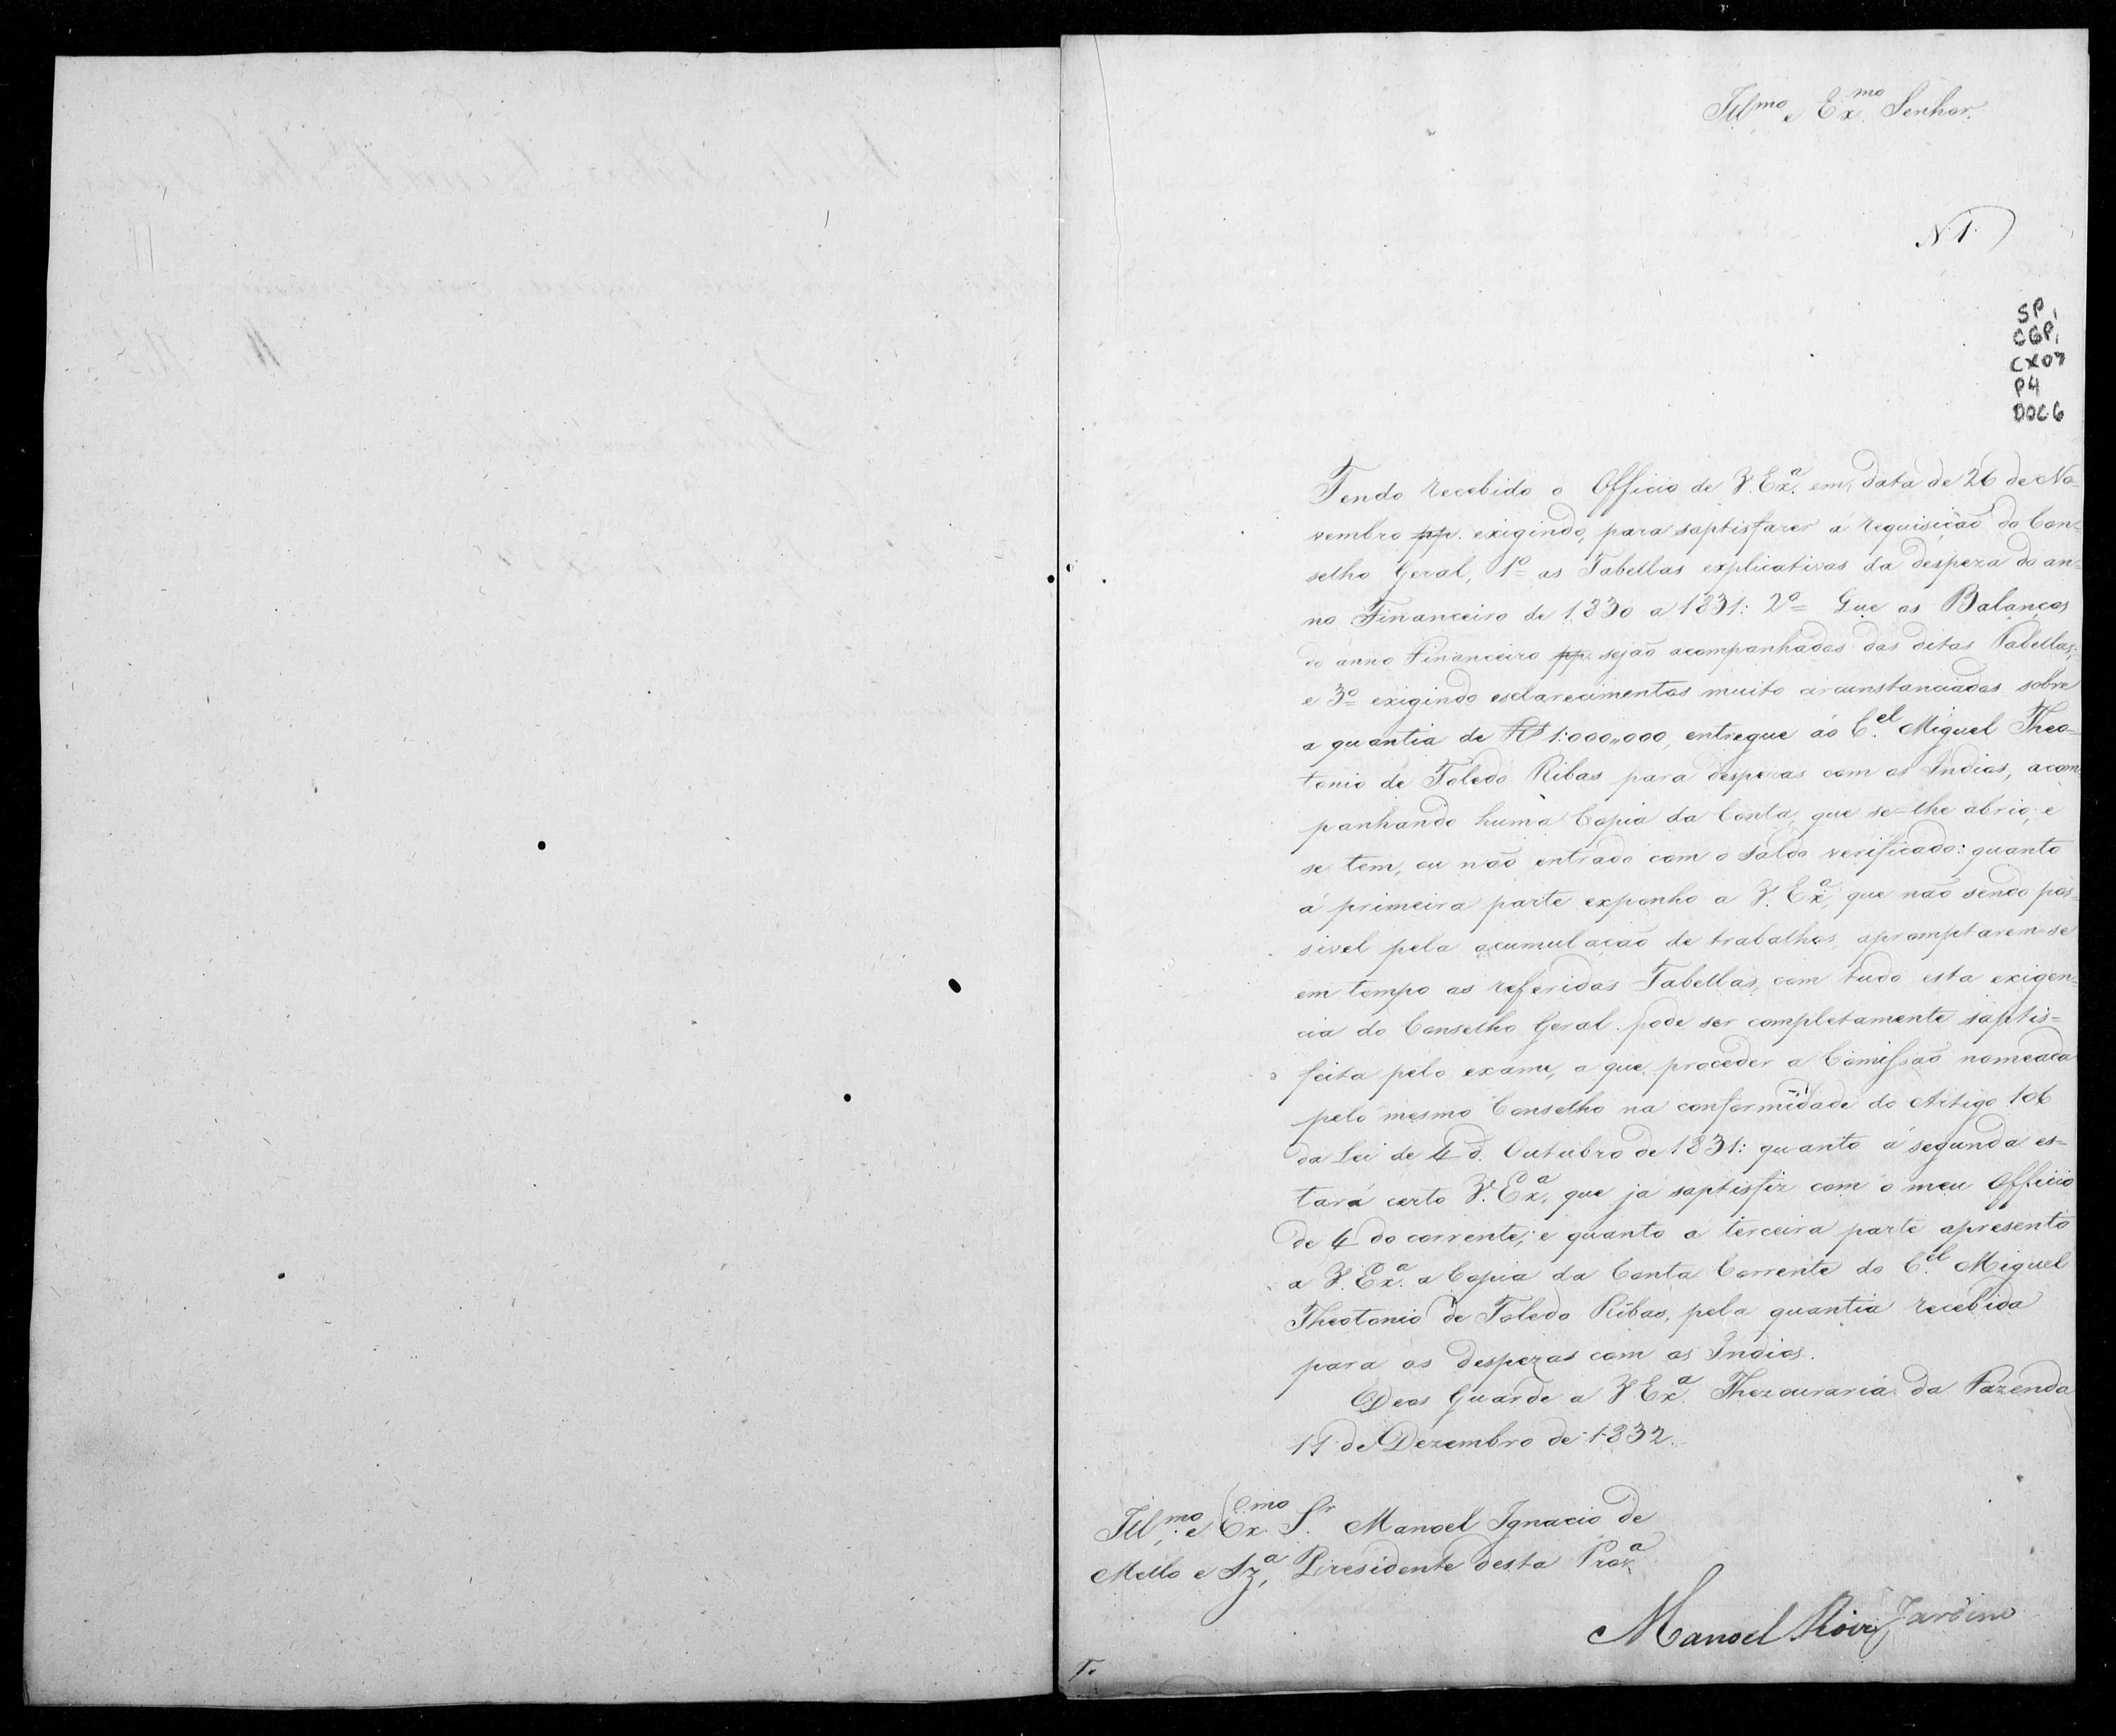 Illmo e Exmo Senhor.
N. 1.
SP,
CGP,
CX07
P4
DOC6
Tendo recebido o Officio de V. Exa. em data de 26 de No-
vembro pp. exigindo, para saptisfazer a requisição do Con-
selho Geral, 1o as Tabellas explicativas da despeza do an-
no Financeiro de 1830 a 1831: 2o Que os Balanços
do anno Financeiro pp. sejão acompanhados das ditas Tabellas;
e 3o exigindo esclarecimentos muito circunstanciados sobre
a quantia de Rs 1:000,,000, entregue ao Cel. Miguel Theo-
tonio de Toledo Ribas para despezas com os Indios, acom-
panhando huma Copia da Conta, que se-lhe abrio, e
se tem, ou não entrado com o saldo verificado: quanto
á primeira parte exponho a V. Exa, que não sendo pos-
sivel pela acumulação de trabalhos, apromptarem-se
em tempo as referidas Tabellas, com tudo esta exigen-
cia do Conselho Geral pode ser completamente saptis=
feita pelo exame, a que proceder a Comissão nomeada
pelo mesmo Conselho na conformidade do Artigo 106
da Lei de 4 d. Outubro de 1831: quanto á segunda es-
tará certo V. Exa. que já saptisfiz com o meu Officio
de 4 do corrente; e quanto a terceira parte apresento
a V. Exa. a Copia da Conta Corrente do Cel. Miguel
Theotonio de Toledo Ribas, pela quantia recebida
para as despezas com os Indios.
Deos Guarde a V. Exa. Thezouraria da Fazenda
11 de Dezembro de 1832.
Illmo. e Exmo. Sr. Manoel Ignacio de
Mello e Sza, Presidente desta Prova.
Manoel Roiz Jardim
T.